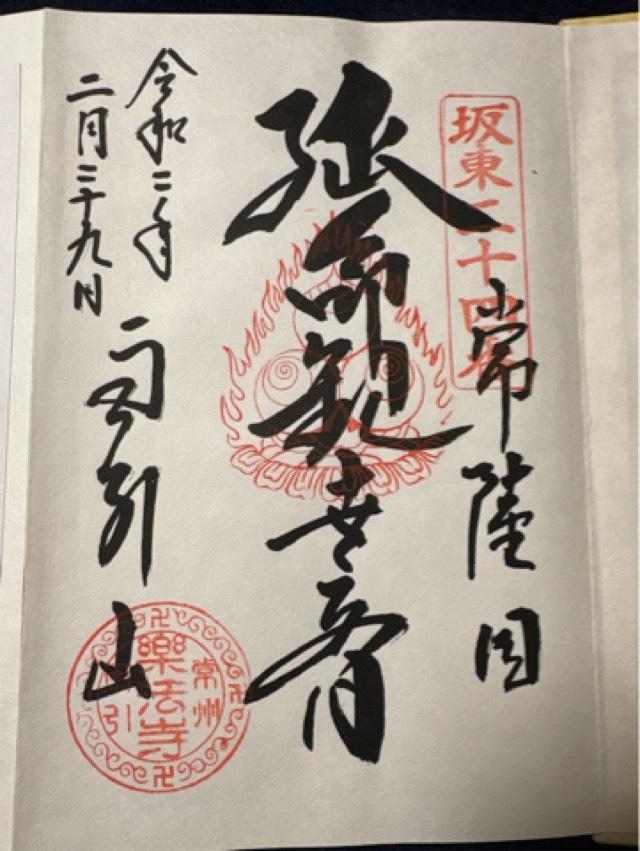 坂東二十四番
常陸国
延命観世音
令和二年
二月二十九日
雨引山
常州
樂法寺
雨引